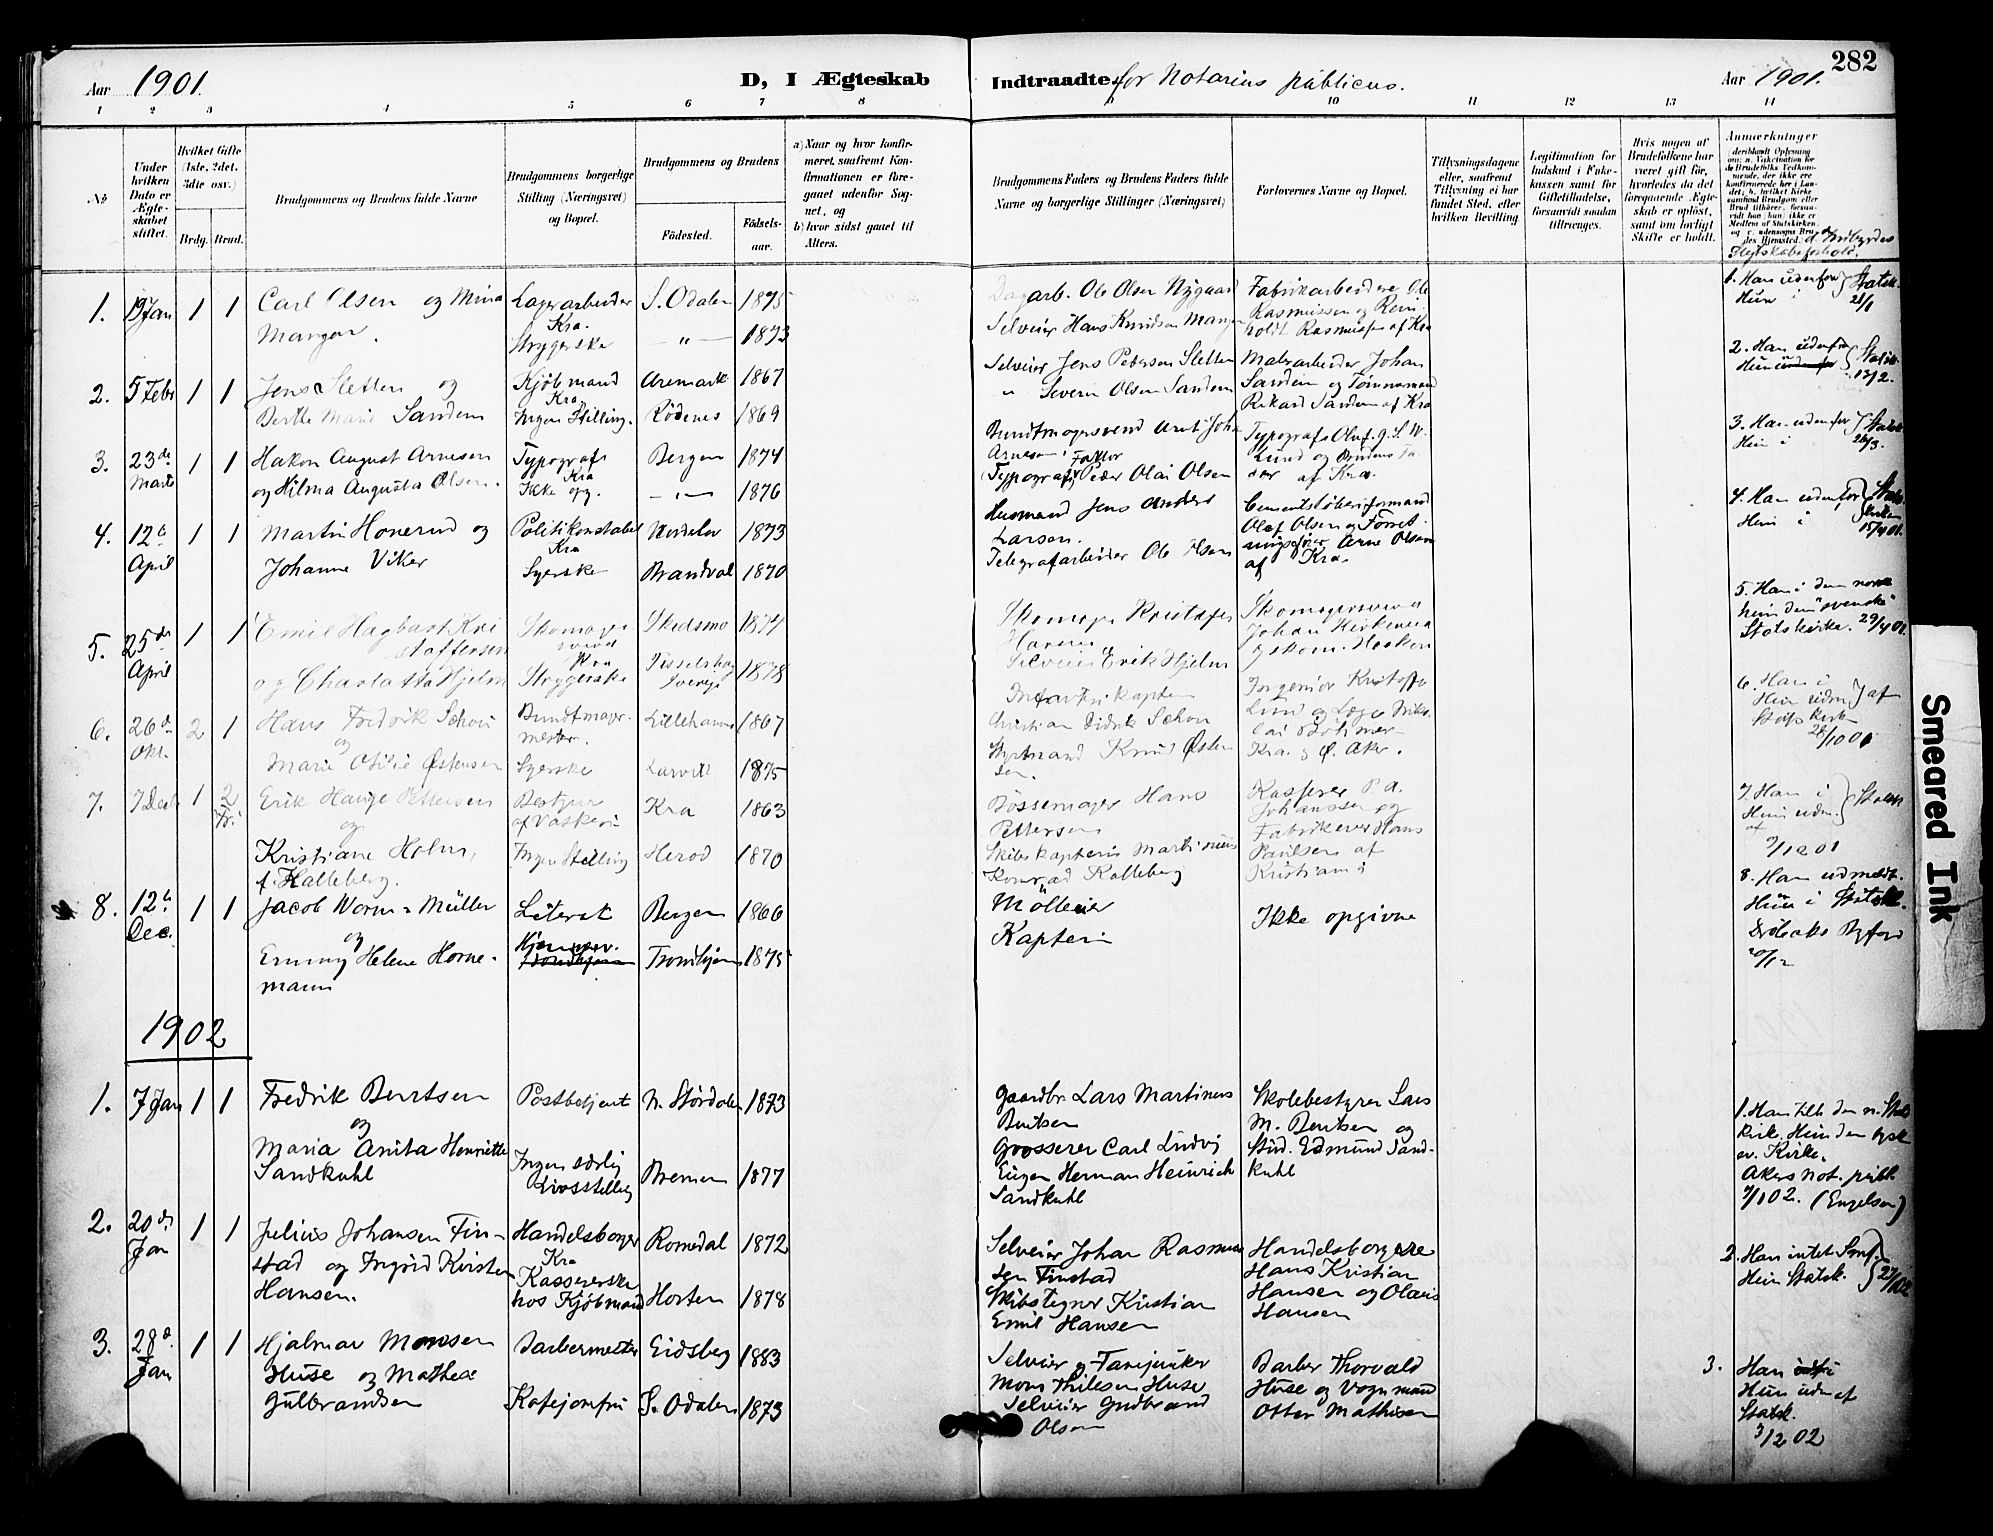 282
Aar 1901.
D, I Ægteskab Indtraadte for Notarius publicus.
Aar 1901.
1 2 3 4 5 6 7 8 9 10 11 12 13 14
No
Under hvilken Dato er Ægteskabet stiftet.
Hvilket Gifte (1ste, 2det, 3die osv.)
Brdg. Brud.
Brudgommens og Brudens fulde Navne
Brudgommens borgerlige Stilling (Næringsvei) og Bopæl.
Brudgommens og Brudens
Fødested.
Fødselsaar.
a) Naar og hvor konfirmeret, saafremt Konfirmationen er foregaaet udenfor Sognet, og
b) hvor sidst gaaet til Alters.
Brudgommens Faders og Brudens Faders fulde Navne og borgerlige Stillinger (Næringsvei)
Forlovernes Navne og Bopæl.
Tillysningsdagene eller, saafremt Tillysning ei har fundet Sted, efter hvilken Bevilling.
Legitimation for Indskud i Enkekassen samt for Giftetilladelse, forsaavidt saadan tiltrænges.
Hvis nogen af Brudefolkene har været gift før, hvorledes da det foregaaende Ægteskab er opløst, samt om lovligt Skifte er holdt.
Anmerkninger
1. 19 Jan 1 1 Carl Olsen og Mina
Mangen.
Lagerarbeider
Kra.
Strygerske
S. Odalen 1875
— " — 1873
Dagarb. Ole Olsen Nygaard
Selveier Hans Knudsen Mangen
Fabrikarbeidere Ole
Rasmussen og Rein
holdt Rasmussen af Kra
1. Han udenfor
Hun i
Statsk.
2. 5 Febr 1 1 Jens Sletten og
Berthe Marie Sandem
Kjøbmand
Kra
Ingen Stilling.
Aremark 1867
Rødenes 1869
Selveier Jens Petersen Sletten
" Severin Olsen Sandem
Malerarbeider Johan
Sandem og Tømmermand
Rikard Sandem af Kra
2. Han udenfor
Hun
13/2.
3. 23de Marts 1 1 Hakon August Arnesen
og Hilma Augusta Olsen.
Typograf
Kra
Ikke opg.
Bergen 1874
— " — 1876
Bundtmagersvend Arnt Joha
Arnesen
Faktor
(Typograf) Peder Olai Olsen
Typograf Oluf. J. S. W.
Lund og Brudens Fa
der af Kra.
3. Han udenfor
Hun i
Statsk
4. 12te April 1 1 Martin Honerud og
Johanne Viker
Politikonstabel
Kra
Syerske
Nordelov 1873
Brandval 1870
Husmand Jens Anders
Larsen.
Telegrafarbeider Ole Olsen
Cementstøberiformand
Olaf Olsen og Forret
ningsfører Arne Olsen
af Kra.
4. Han udenfor
Hun i
15/4 01.
5. 25de April 1 1 Emil Hagbart Kri
stoffersen
og Charlotta Hjelm
Skomager
svend
Kra
Strygerske
Skedsmo 1874
Sverige 1878
Skomager Kristofer
Hansen
Selveier Erik Hjelm
Skomagersvend
Johan
5. Han i den norske
hun den "svenske"
Statskirke. 29/4 01.
6. 26de Okt. 2 1 Hans Fredrik Schou
og
Marie Otilie Østensen
Bundtmager
mester.
Syerske
Lillehammer 1867
Larvik 1875
Infanterikaptein
Christian Didrik Schou
Styrmand Knud Østen
sen.
Ingeniør Kristoffer
Lund og Læge
Kra. og Ø. Aker.
6. Han i
Hun uden } af
Stats kirken
7. 7 Dec 1 2 Erik Hauge Pettersen
og
Kristiane Holm,
f. Kalleberg.
Bestyrer
af Vaskeri
Ingen Stilling
Kra 1863
Herød 1870
Bøssemager Hans
Pettersen
Skibskaptein Martinius
Konrad Kalleberg
Kasserer P. A.
Johanssen og
Fabrikeier Hans
Paulsen af
Kristiania
7. Han i
Hun uden.
af
9/12 01
8. 12te Dec. 1 1 Jacob Worm-Müller
og
Emmy Helene Horne-
mann
Literat
Bergen 1866
Trondhjem 1875
Mølleier
Kaptein
Ikke opgivne
8. Han udmeldt.
Hun i Statsk.
Drøbaks Byfogd
20/12
1902
1. 7 Jan 1 1 Fredrik Berntsen
og
Maria Anita Henriette
Sandkuhl
Postbetjent
Ingen særlig
Livsstilling
N. Størdalen 1873
Bremen 1877
Gaardbr. Lars Martinus
Berntsen
Grosserer Carl Ludvig
Eugen Herman Heinrich
Sandkuhl
Skolebestyrer Lars
M. Berntsen og
Stud. Edmund Sand-
kuhl
1. Han tilh. den n. Stats
kirke. Hun den tysk
ev. Kirke.
Akers Not. publ.
7/1 02. (Engelsen)
2. 20de Jan 1 1 Julius Johansen Fin-
stad og Ingrid Kirsten
Hansen.
Handelsborger
Kra
Kassererske
hos Kjøbmand
Romedal 1872
Horten 1878
Selveier Johan Rasmus
sen Finstad
Skibstegner Kristian
Emil Hansen
Handelsborgere
Hans Kristian
Hansen og Olaus
Hansen
2. Han intet Smf.
Hun Statsk.
3. 28de Jan 1 1 Hjalmar Monsen
Huse og Mathea
Gulbrandsen
Barbermester
Kafejomfru
Eidsberg 1883
S. Odalen 1873
Selveier og Tømmermand
Mons Thilesen Huse
Selveier Gudbrand
Olsen
Barber Thorvald
Huse og Vognmand
Otter Mathisen
3. Han
Hun uden af
Statsk.
3/2 02
Smeared Ink